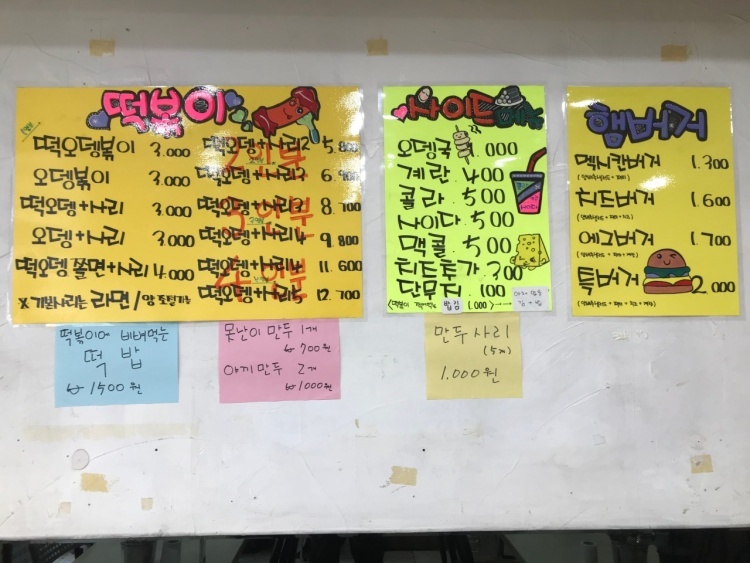 떡볶이
떡오뎅볶이 3.000
오뎅볶이 3.000
떡오뎅+사리 3.000
오뎅+사리 3.000
떡오뎅 쫄면+사리 4.000
X 기본사리는 라면/
떡오뎅+사리2 5.800
떡오뎅+사리2 6.900
떡오뎅+사리 8.700
떡오뎅+사리4 9.800
떡오뎅+사리 11.600
떡오뎅+사리5 12.700
사이드
오뎅국 1.000
계란 400
콜라 500
사이다 500
맥콜 500
치즈추가 300
단무지 100
밥김 1.000
햄버거
맥시칸버거 1.300
치즈버거 1.600
에그버거 1.700
특버거 2.000
떡볶이에 비벼먹는
떡밥
₩1500원
못난이 만두 1개
₩700원
야끼만두 2개
₩1000원
만두사리
(5개)
1.000원